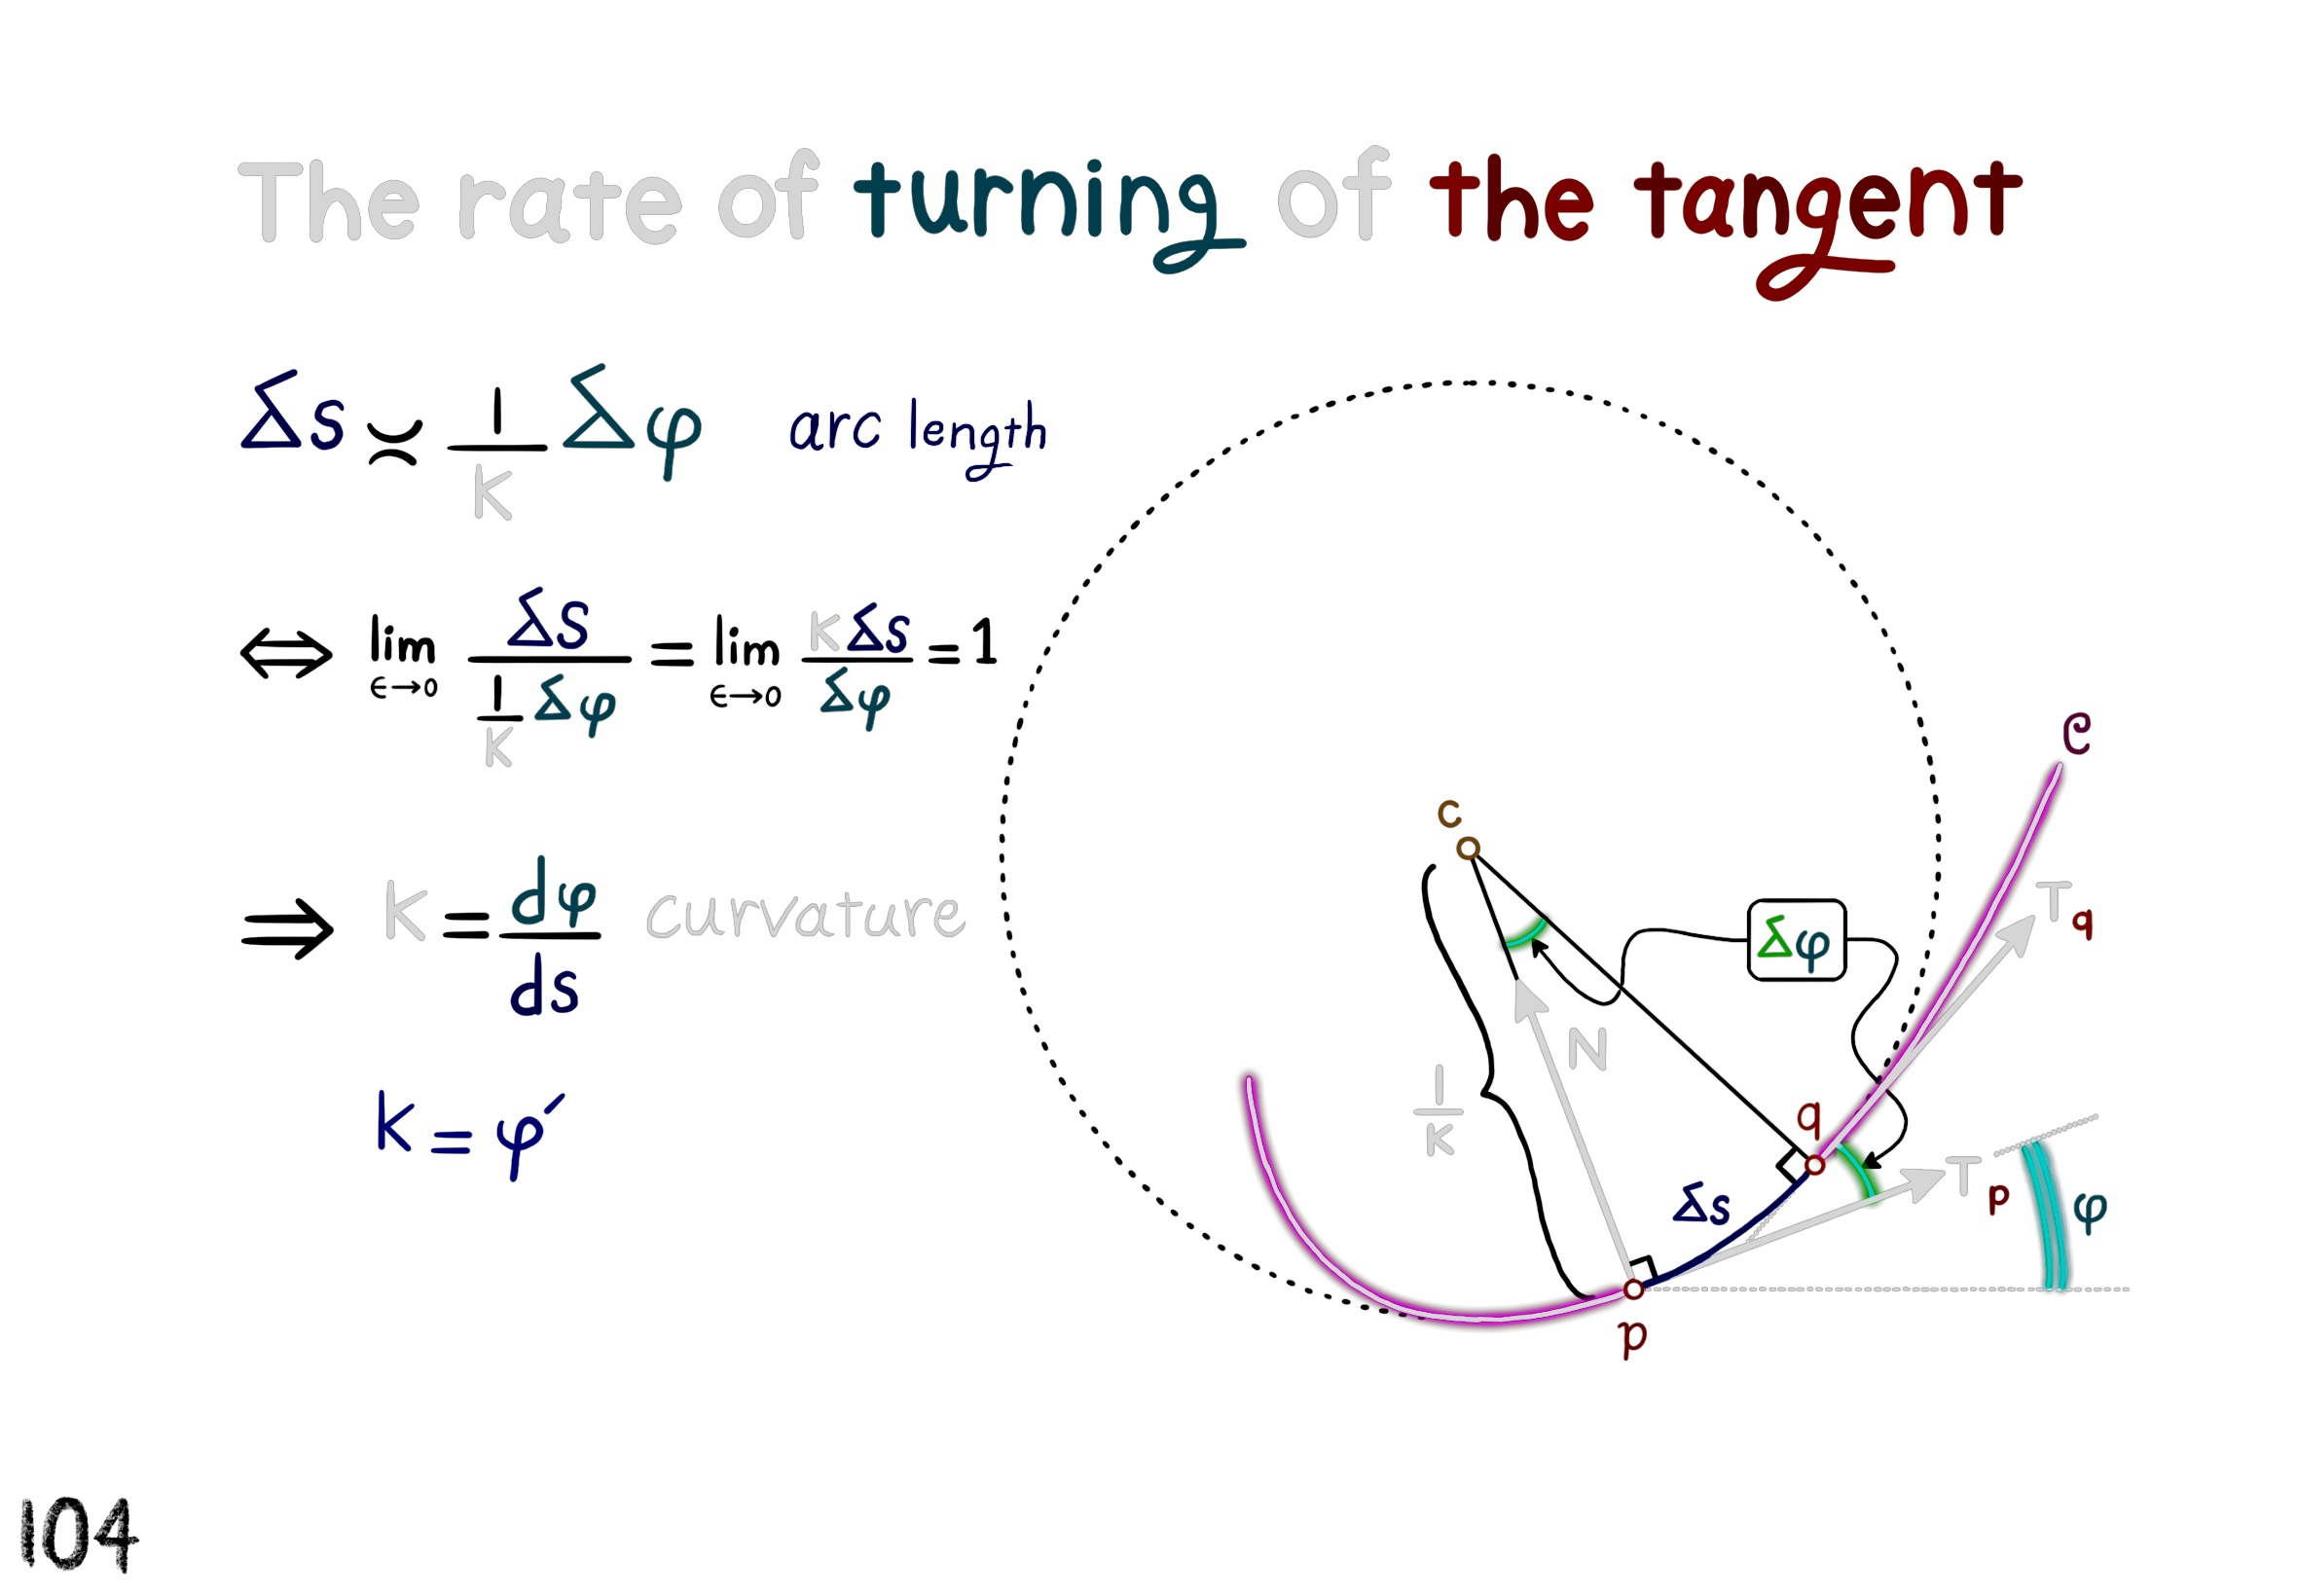 The rate of turning of the tangent
Δs ≍ 1/K Δφ arc length
⇔ lim ϵ→0 Δs / (1/K Δφ) = lim ϵ→0 KΔs / Δφ = 1
⇒ K = dφ/ds curvature
K = φ′
c
e
T q
Δφ
N
1/K
q
T p
φ
Δs
p
104